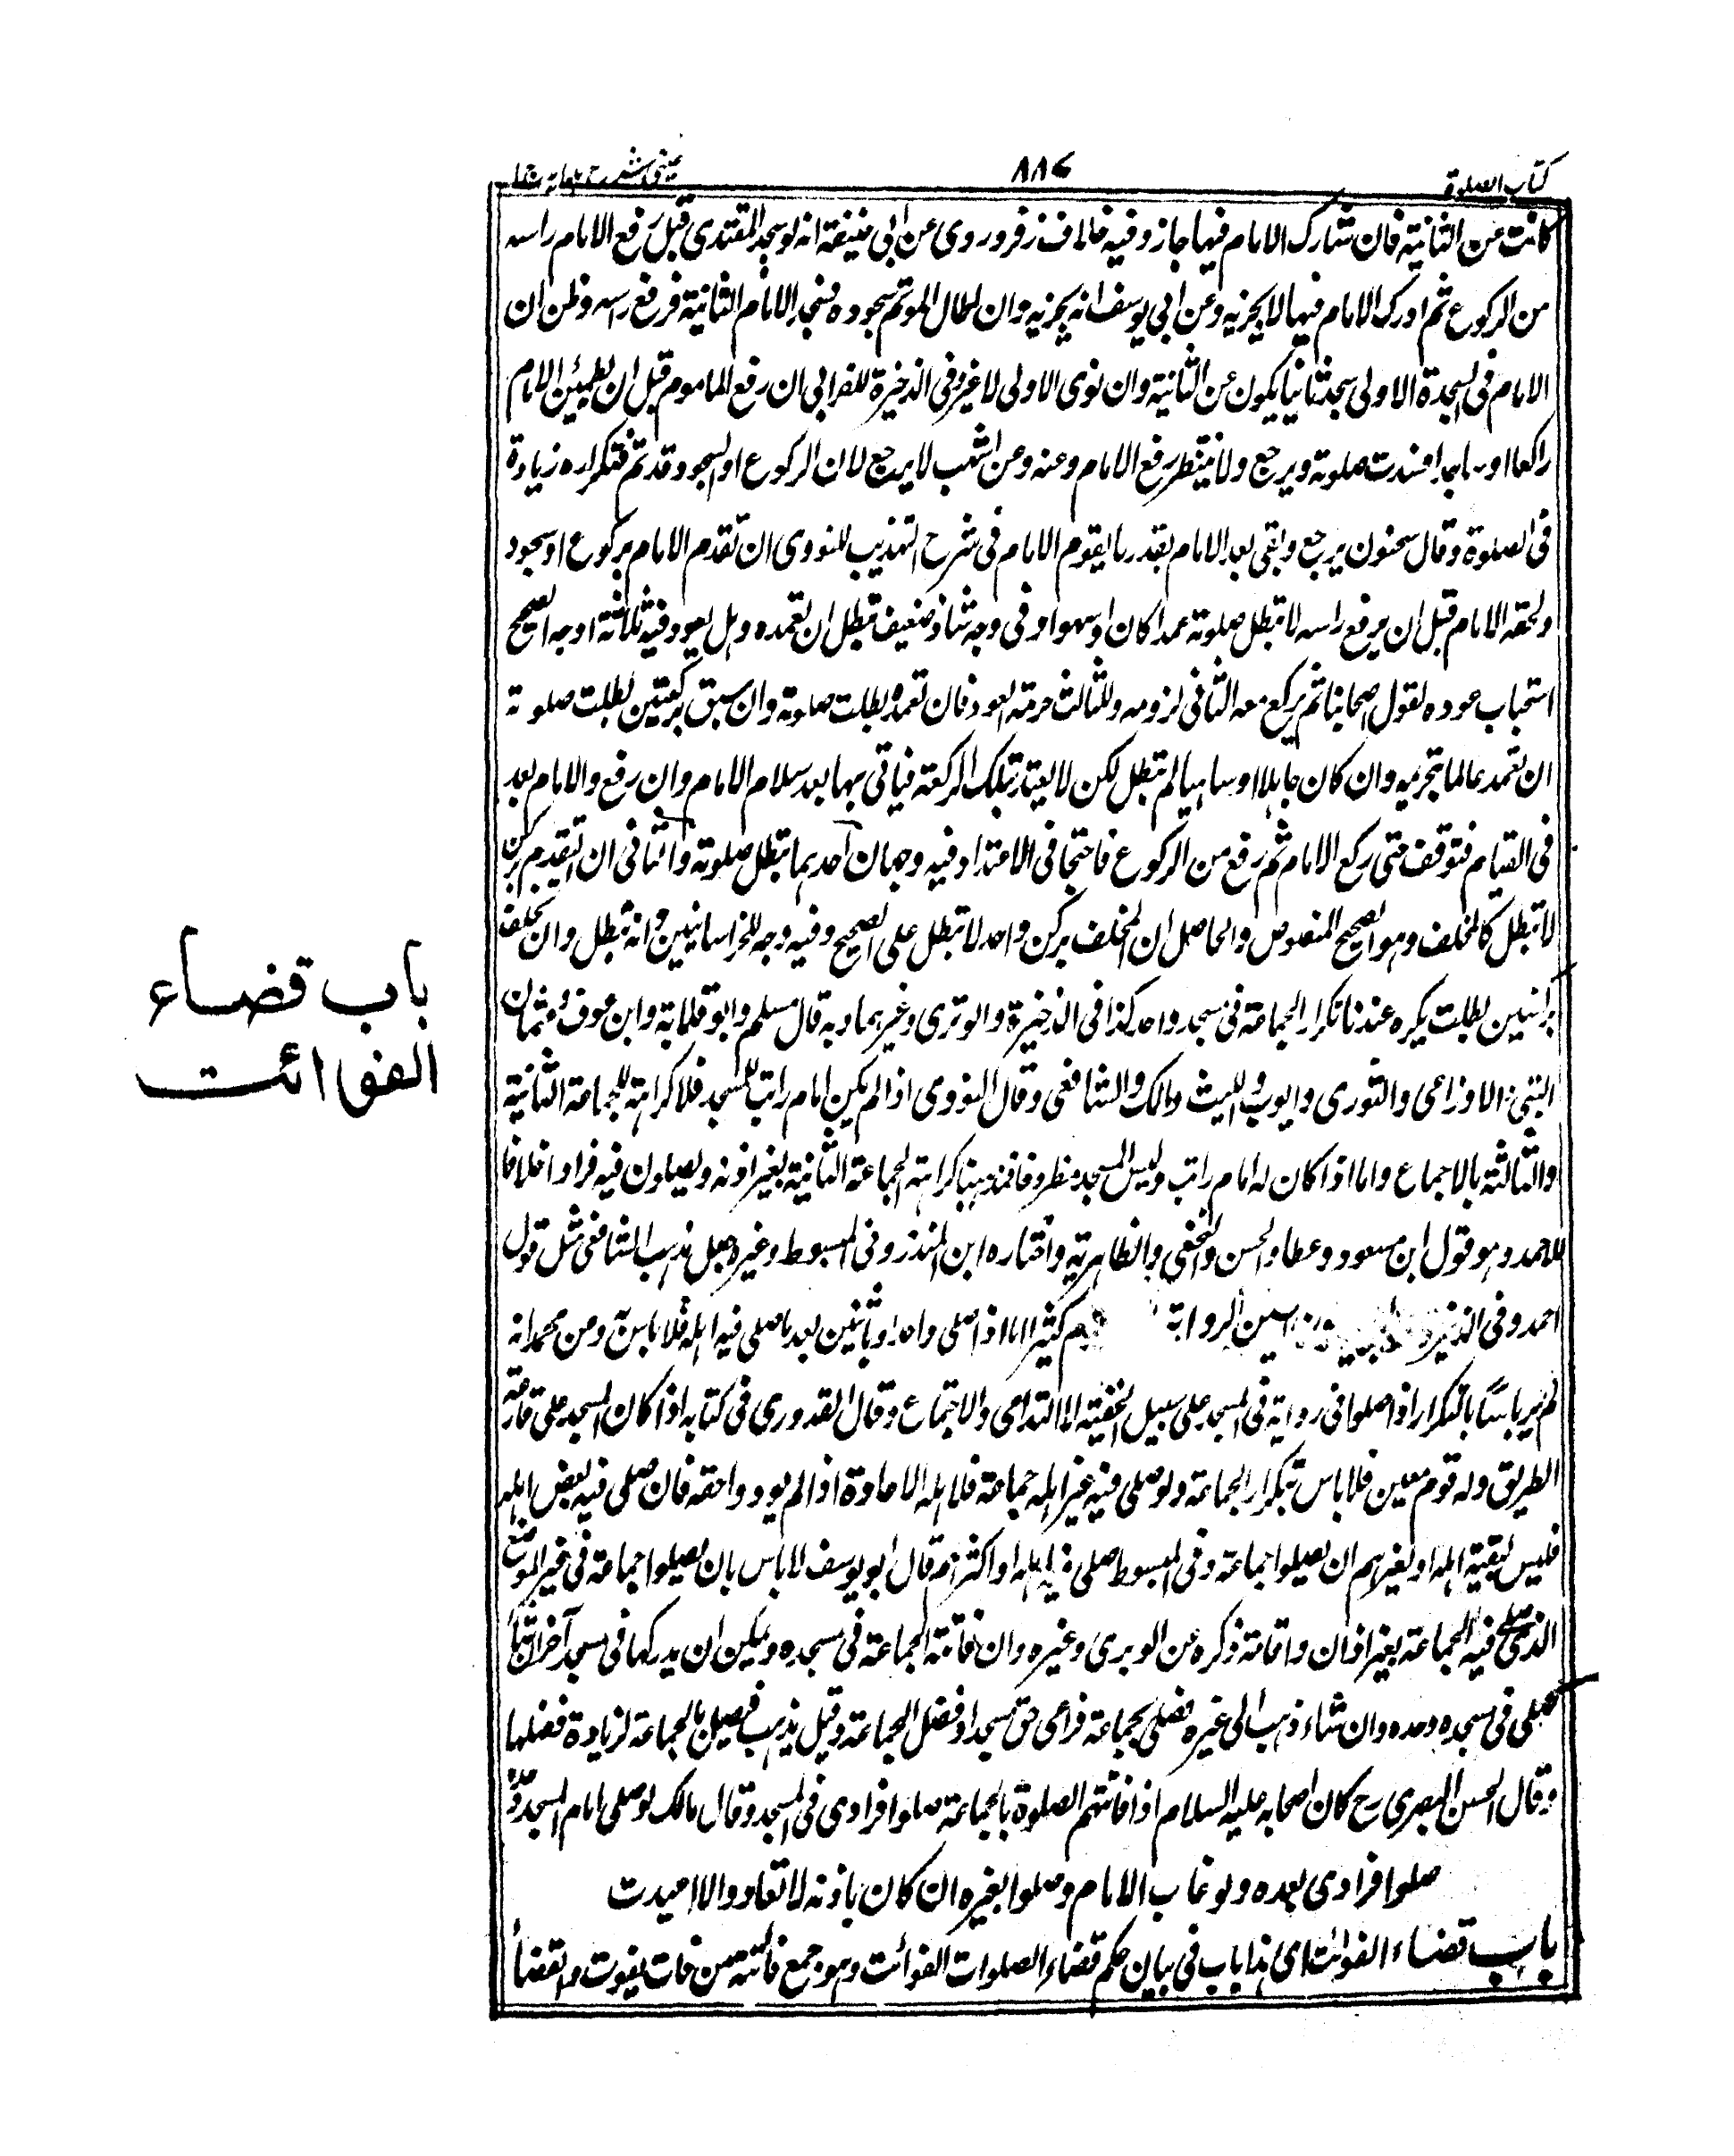 كتاب الصلوة
٨٨٧
عينى شرح هدايه ج ١
كانت عن الثانية فان شارك الامام فيها جاز وفيه خلاف زفر وروى عن ابى حنيفة انه لو سجد المقتدى قبل رفع الامام راسه
من الركوع ثم ادرك الامام فيها لا يجزيه وعن ابى يوسف انه يجزيه وان اطال الموتم سجوده فسجد الامام الثانية فرفع راسه وظن ان
الامام فى السجدة الاولى سجد ثانيا يكون عن الثانية وان نوى الاولى لا غير وفى الذخيرة للقرافى ان رفع الماموم قبل ان يطمئن الامام
راكعا او ساجدا فسدت صلوته ويرجع ولا ينتظر رفع الامام وعنه وعن اشهب لا يرجع لان الركوع او السجود قد تم فتكراره زيادة
فى الصلوة وقال سحنون يرجع ويبقى بعد الامام بقدر ما يقوم الامام فى شرح التهذيب للنووى ان تقدم الامام بركوع او سجود
ولحقه الامام قبل ان يرفع راسه لا تبطل صلوته عمدا كان او سهوا وفى وجه شاذ ضعيف تبطل ان تعمده وهل يعود فيه ثلاثة اوجه الصحيح
استحباب عوده لقول اصحابنا ثم يركع معه الثانى لزومه والثالث حرمة العود فان تعمده بطلت صلوته وان سبق بركعتين بطلت صلوته
ان تعمد عالما بتحريمه وان كان جاهلا او ساهيا لم تبطل لكن لا يعتد بتلك الركعة فياتى بها بعد سلام الامام وان رفع والامام بعد
فى القيام فتوقف حتى ركع الامام ثم رفع من الركوع فاجتمعا فى الاعتدال وفيه وجهان احدهما تبطل صلوته والثانى ان التقدم بركن
لا تبطل كالتخلف وهو الصحيح المنصوص والحاصل ان التخلف بركن واحد لا تبطل على الصحيح وفيه وجه للخراسانيين وانه تبطل وان تخلف
بركنين بطلت يكره عندنا تكرار الجماعة فى مسجد واحد كذا فى الذخيرة والوترى وغيرهما وبه قال مسلم وابو قلابة وابن عوف وعثمان
البتى والاوزاعى والثورى وايوب والليث ومالك والشافعى وقال النووى اذا لم يكن امام راتب للمسجد فلا كراهة للجماعة الثانية
والثالثة بالاجماع واما اذا كان له امام راتب وليس المسجد مطروقا فمذهبنا كراهة الجماعة الثانية بغير اذنه ويصلون فيه فرادا خلافا
لاحمد وهو قول ابن مسعود وعطا والحسن والنخعى والظاهرية واختاره ابن المنذر وفى المبسوط وغيره جعل مذهب الشافعى مثل قول
احمد وفى الذخيرة الرواية كثير اما اذا صلى واحد او باثنين بعد ما صلى فيه اهله فلا باس به وعن محمد انه
لم ير باسا بالتكرار اذا صلوا فى رواية فى المسجد على سبيل الخفية لا التداعى والاجتماع وقال القدورى فى كتابه اذا كان المسجد على قارعة
الطريق وله قوم معين فلا باس بتكرار الجماعة ولو صلى فيه غير اهله جماعة فلاهله الاعادة اذا لم يود واحقه فان صلى فيه بعض اهله
فليس لبقية اهله او لغيرهم ان يصلوا جماعة وفى المبسوط صلى فيه اهله او اكثرهم قال ابو يوسف لا باس بان يصلوا جماعة فى غير الموضع
الذى صلى فيه الجماعة بغير اذان واقامة ذكره عن الوبرى وغيره وان فاتته الجماعة فى مسجده ويمكن ان يدركها فى مسجد آخر ان شاء
صلى فى مسجده وحده وان شاء ذهب الى غيره فصلى بجماعة فراعى حق مسجد او فضل الجماعة وقيل يذهب فيصلى بالجماعة لزيادة فضلها
وقال الحسن البصرى رح كان اصحابه عليه السلام اذا فاتتهم الصلوة بالجماعة صلوا فرادى فى المسجد وقال مالك لو صلى امام المسجد وحده
صلوا فرادى بعده ولو غاب الامام وصلوا بغيره ان كان باذنه لا تعاد والا اعيدت
باب قضاء الفوائت اى هذا باب فى بيان حكم قضاء الصلوات الفوائت وهو جمع فائتة من فات يفوت والقضاء
باب قضاء
الفوائت